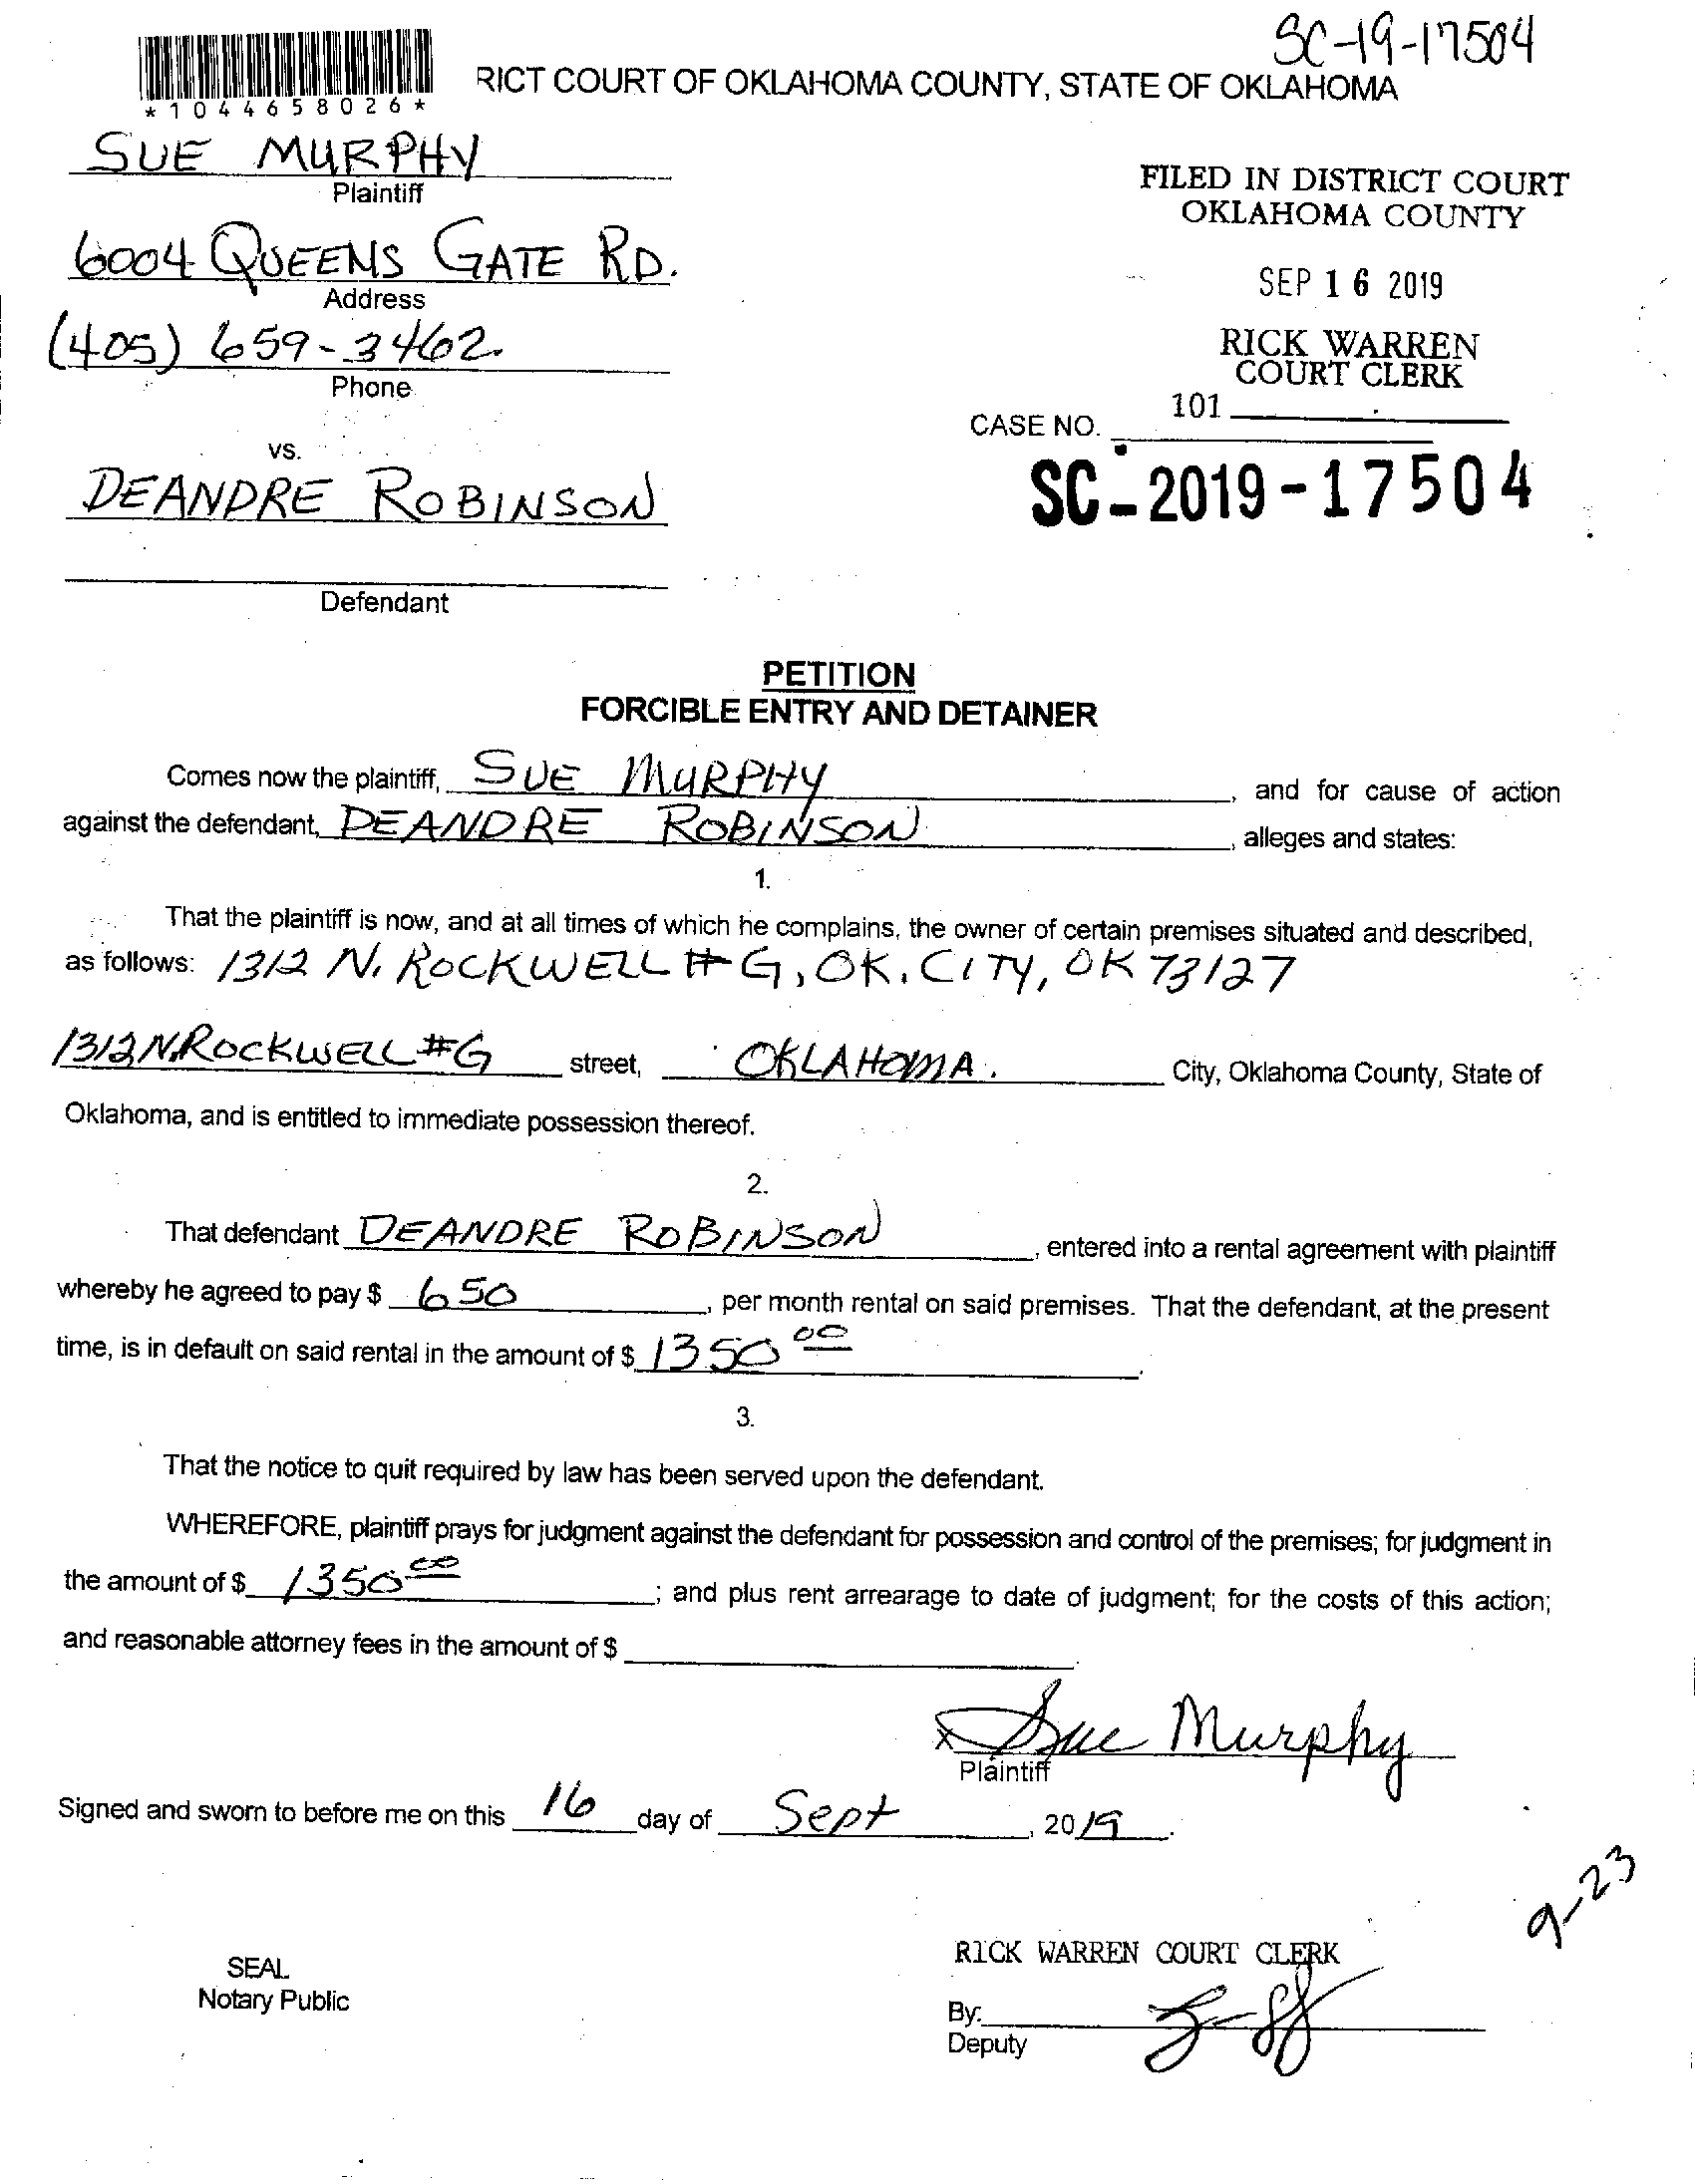 SC-19-17504
RICT COURT OF OKLAHOMA COUNTY, STATE OF OKLAHOMA
*1044658026*
SUE MURPHY
Plaintiff
FILED IN DISTRICT COURT
OKLAHOMA COUNTY
6004 QUEENS GATE RD.
Address
SEP 16 2019
(405) 659-3462
Phone
RICK WARREN
COURT CLERK
101
CASE NO.
vs.
SC-2019-17504
DEANDRE ROBINSON
Defendant
PETITION
FORCIBLE ENTRY AND DETAINER
Comes now the plaintiff, SUE MURPHY, and for cause of action
against the defendant, DEANDRE ROBINSON, alleges and states:
1.
That the plaintiff is now, and at all times of which he complains, the owner of certain premises situated and described,
as follows: 1312 N. ROCKWELL # G, OK. CITY, OK 73127
1312 N. ROCKWELL #G street, OKLAHOMA. City, Oklahoma County, State of
Oklahoma, and is entitled to immediate possession thereof.
2.
That defendant DEANDRE ROBINSON, entered into a rental agreement with plaintiff
whereby he agreed to pay $ 650, per month rental on said premises. That the defendant, at the present
time, is in default on said rental in the amount of $ 1350 00.
3.
That the notice to quit required by law has been served upon the defendant.
WHEREFORE, plaintiff prays for judgment against the defendant for possession and control of the premises; for judgment in
the amount of $ 1350 00; and plus rent arrearage to date of judgment; for the costs of this action;
and reasonable attorney fees in the amount of $
x Sue Murphy
Plaintiff
Signed and sworn to before me on this 16 day of Sept, 2019.
9-23
SEAL
Notary Public
RICK WARREN COURT CLERK
By:
Deputy